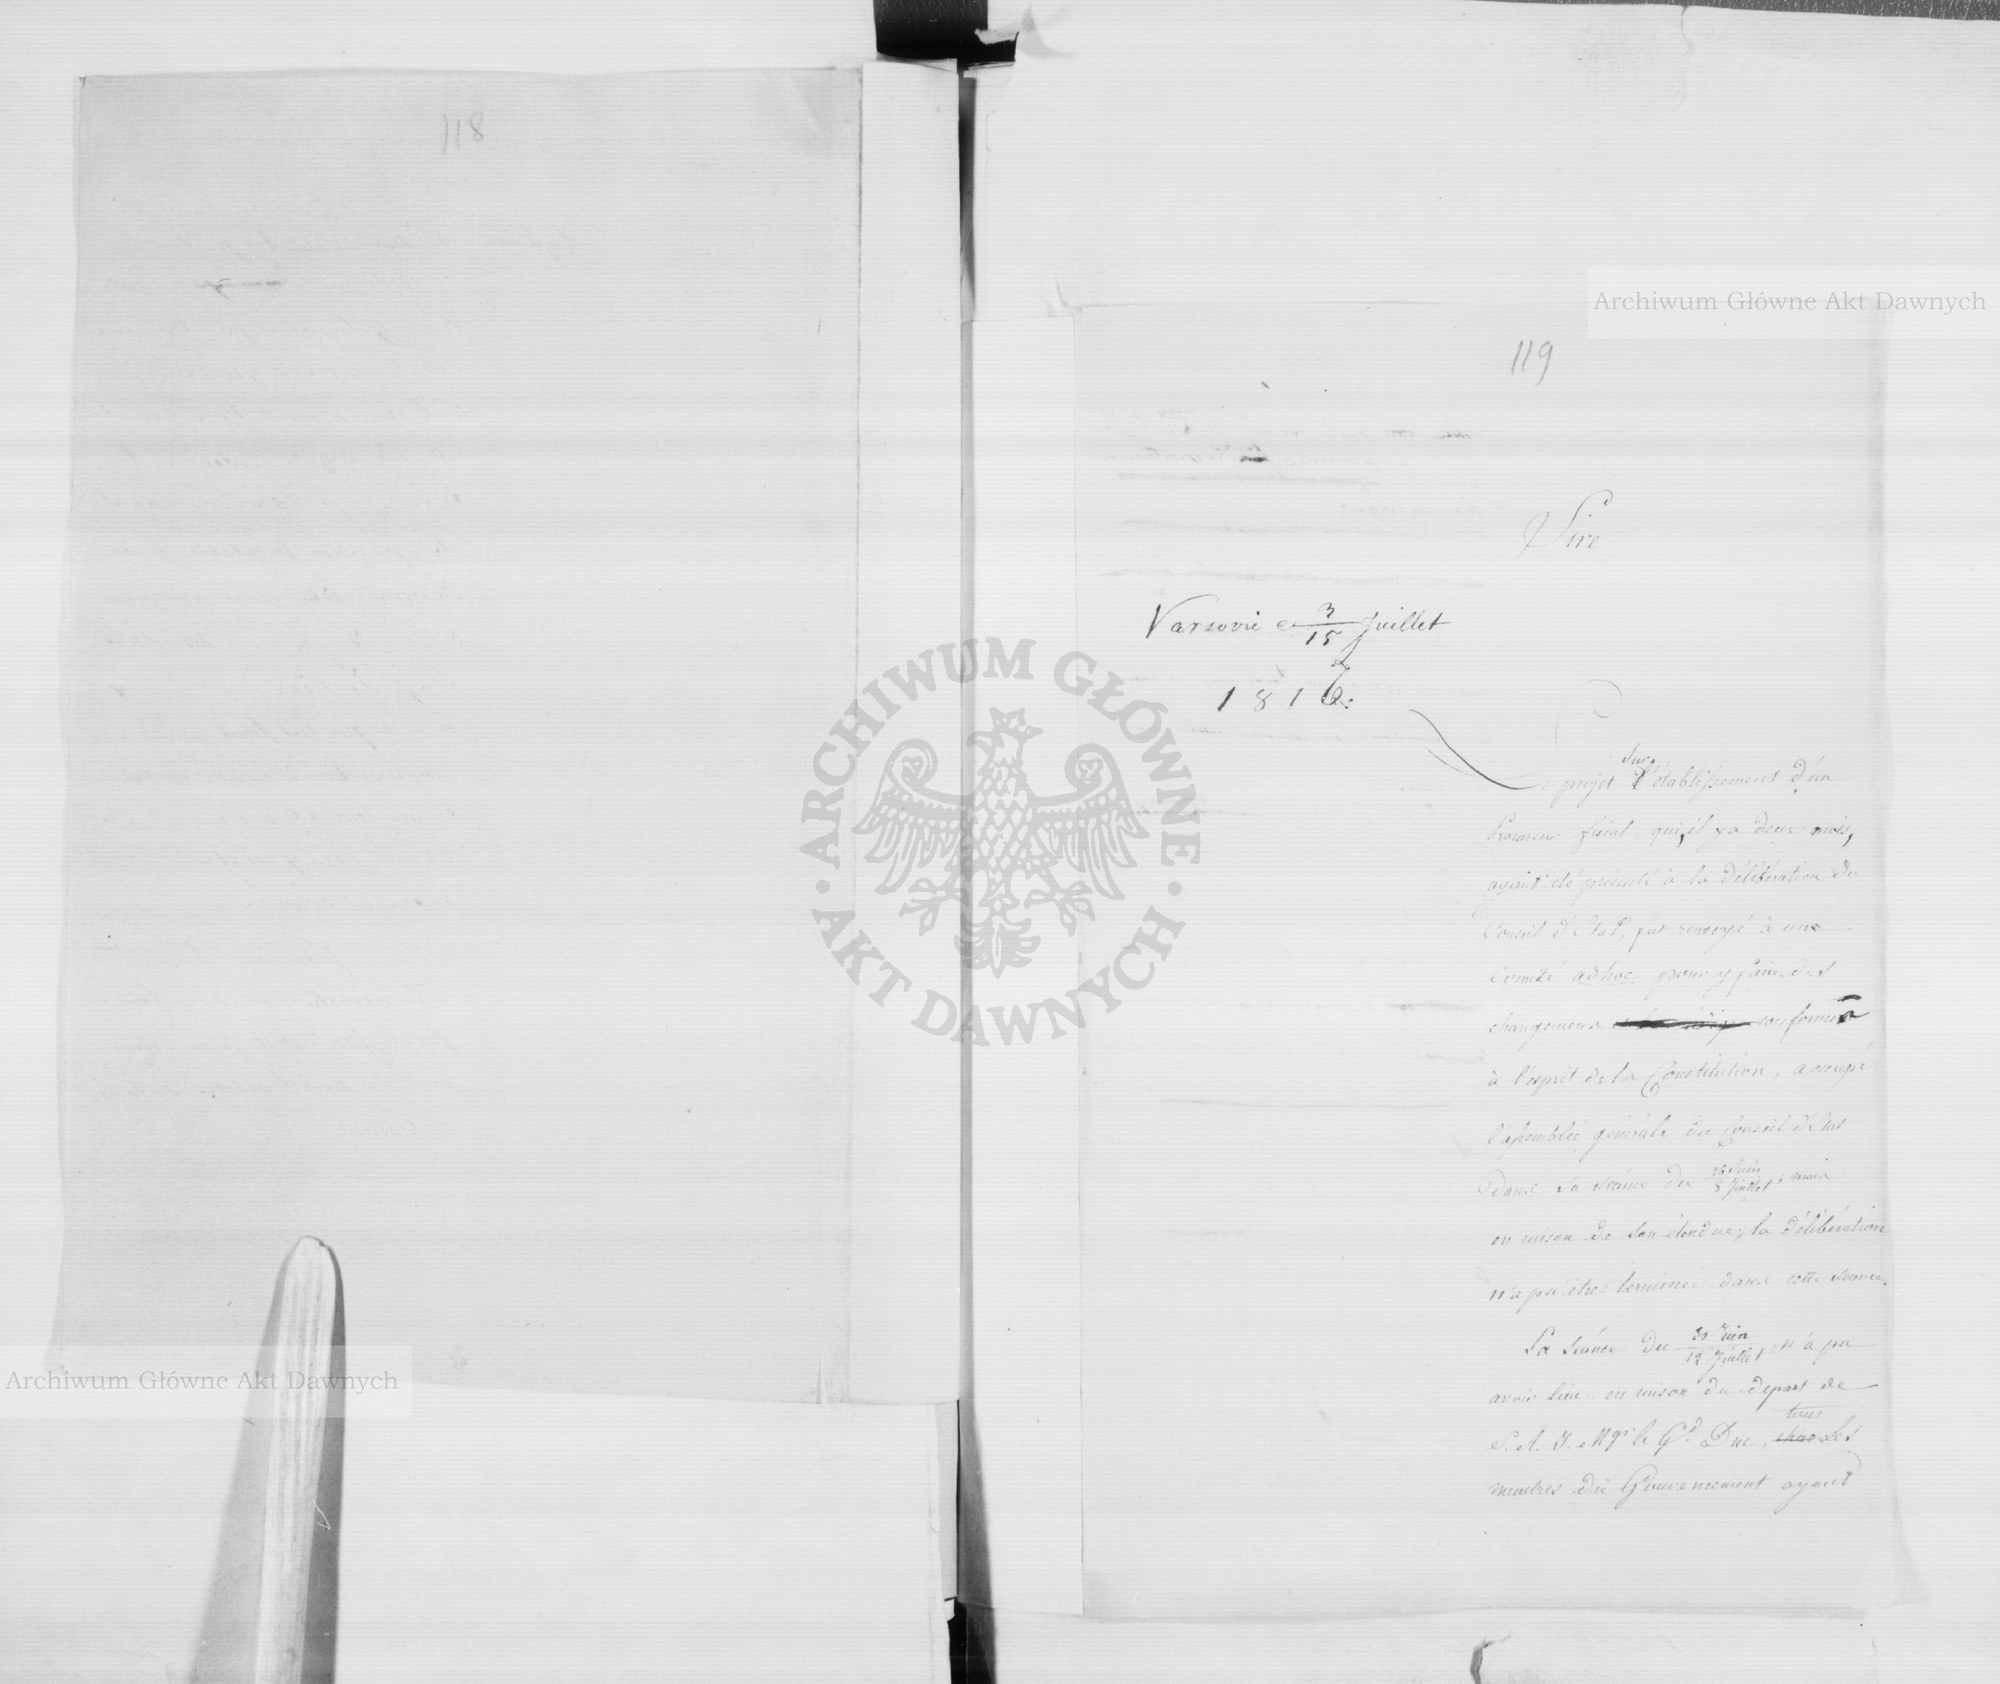 118
119
Sire
Varsovie ce 3/15 Juillet
181
Le projet sur l'établissement d'un
Procureur fiscal, qui, il y a deux mois,
ayant été présenté à la délibération du
Conseil d'Etat, fut renvoyé à une
Comité adhoc pour y faire des
changemens conformes
à l'esprit de la Constitution, a occupé
l'assemblée générale du Conseil d'Etat
dans sa séance du 26 Juin/8 Juillet; mais
en raison de son étendue, la délibération
n'a pu être terminée dans cette séance.
La séance du 30 Juin/12 Juillet n'a pu
avoir lieu en raison du départ de
S. A. I. Mgr le Gd Duc, tous les
membres du Gouvernement ayant
Archiwum Główne Akt Dawnych
Archiwum Główne Akt Dawnych
ARCHIWUM GŁÓWNE
AKT DAWNYCH